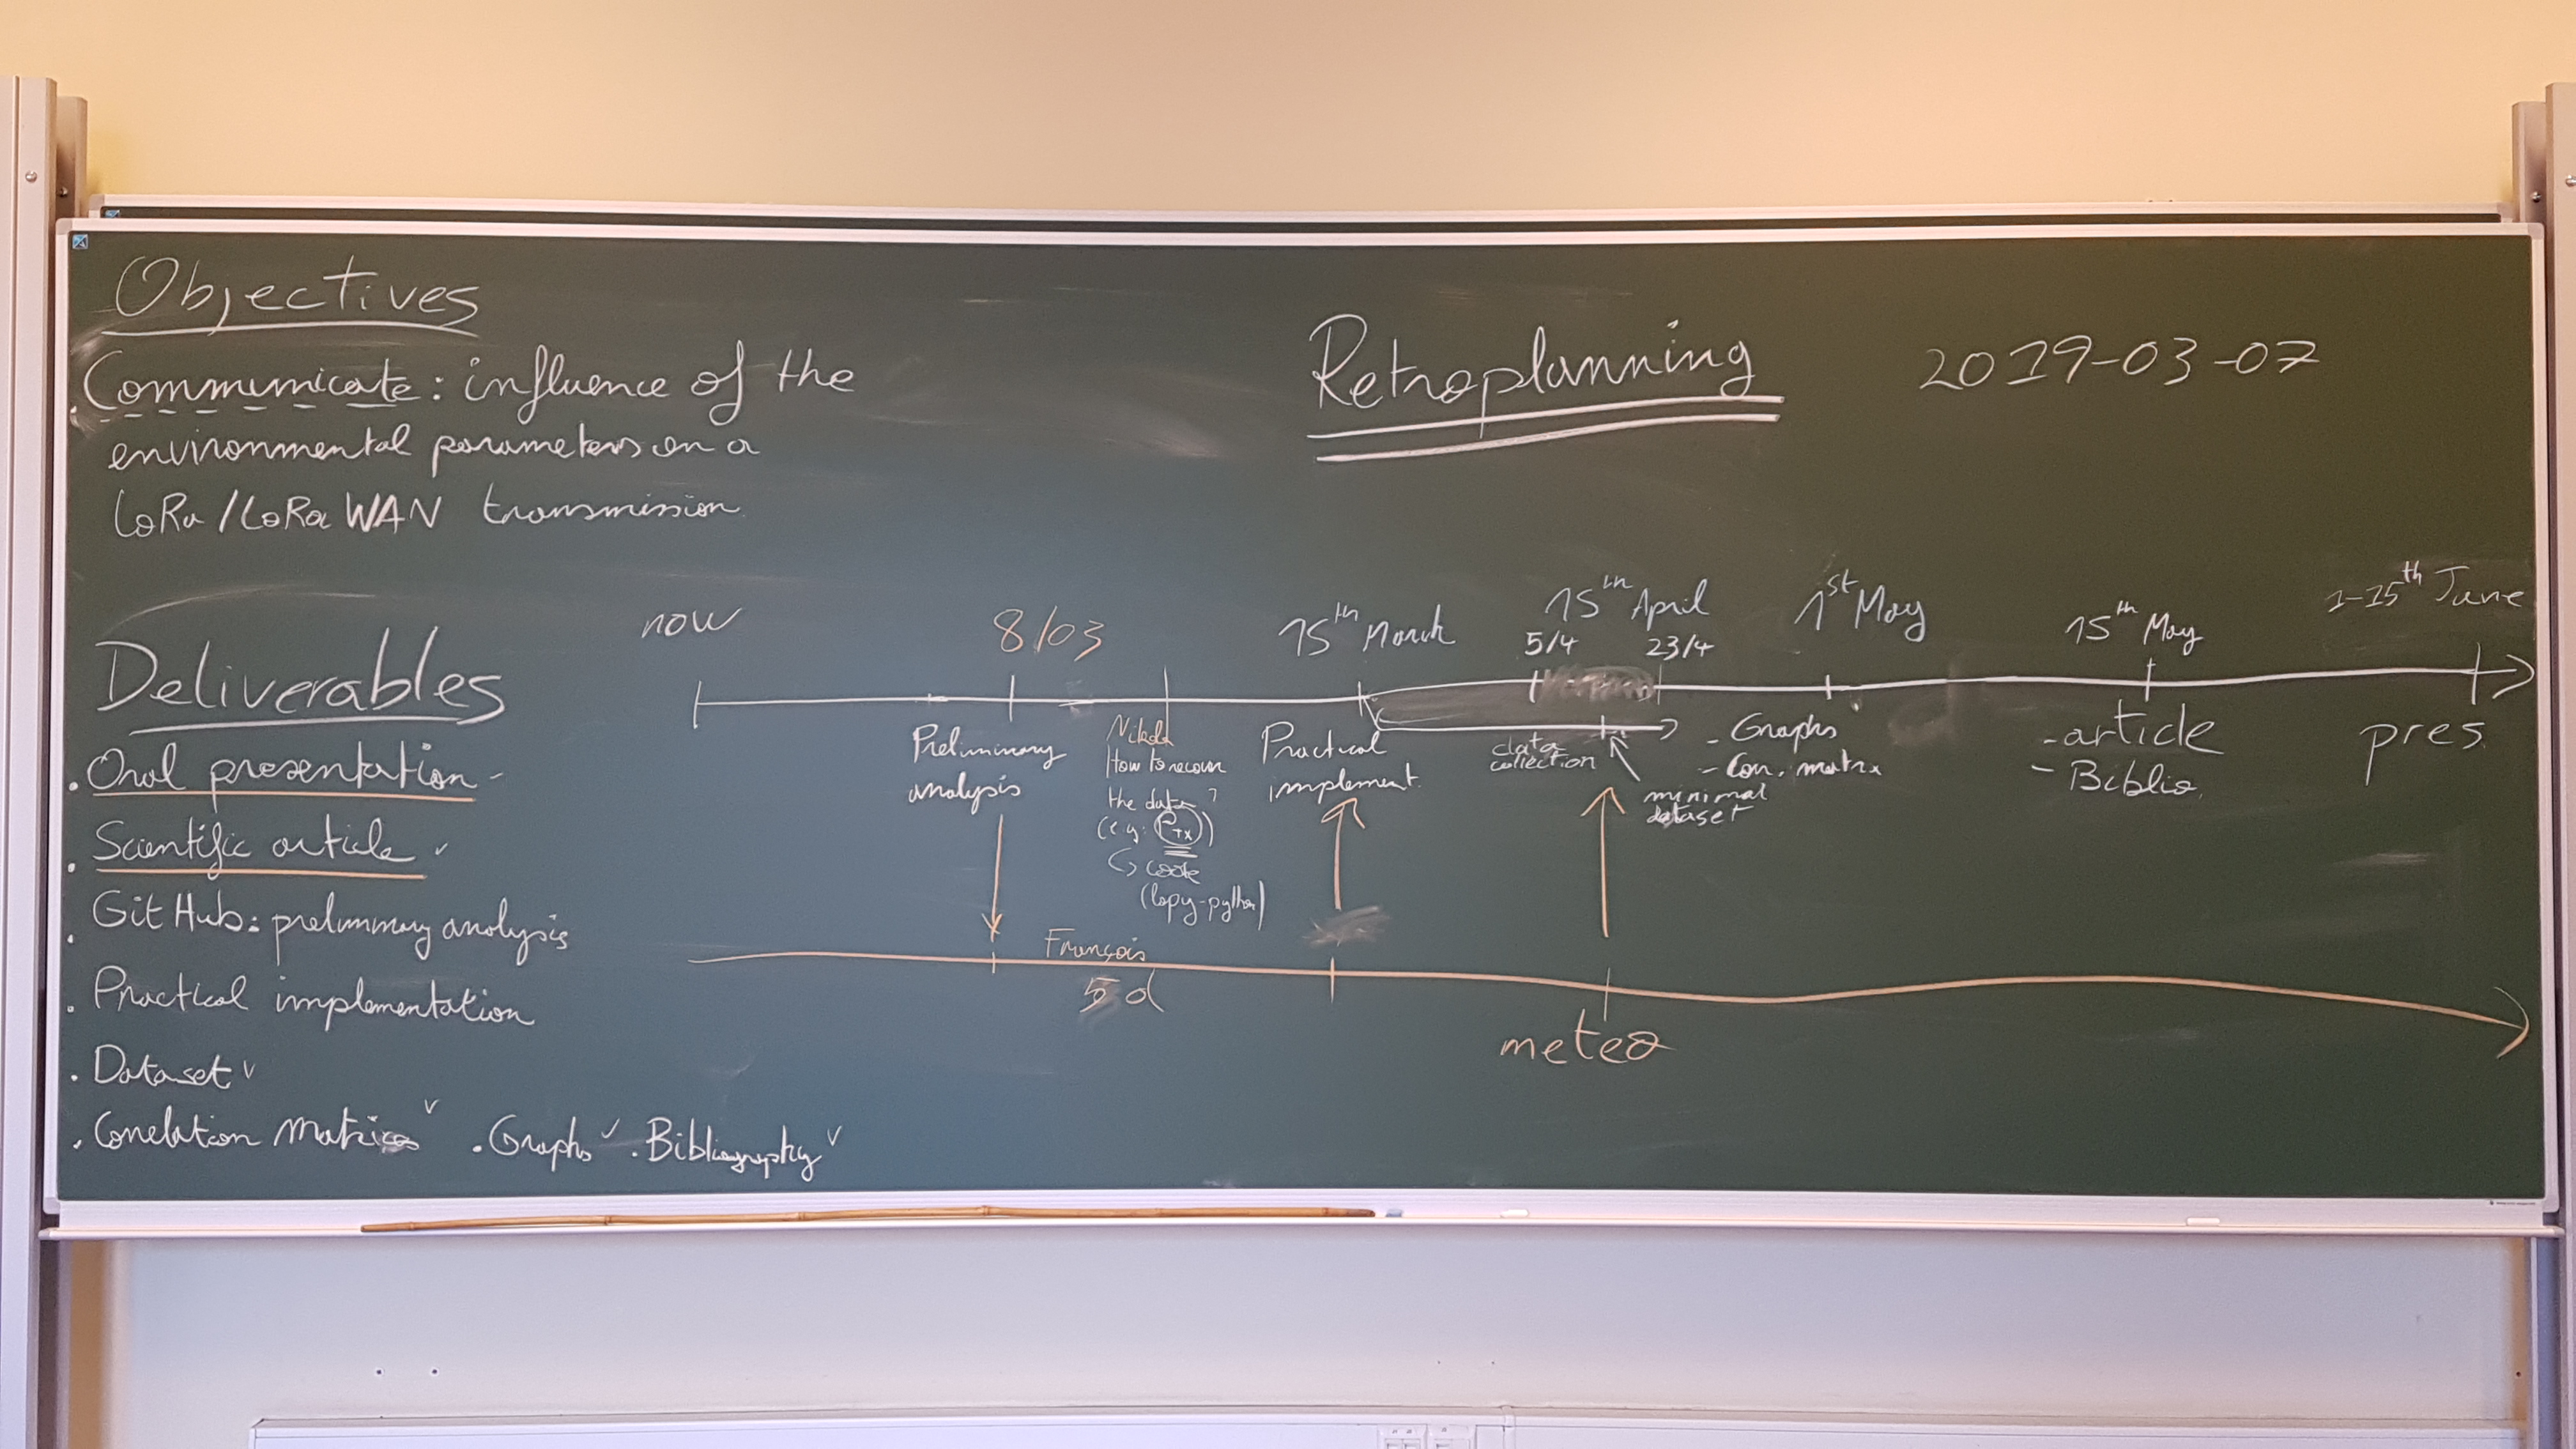 Objectives
Communicate: influence of the
environmental parameters on a
LoRa/LoRaWAN transmission
Retroplanning 2019-03-07
Deliverables
. Oral presentation -
. Scientific article v
. GitHub: preliminary analysis
. Practical implementation
. Dataset v
. Correlation Matrices v . Graphs v . Bibliography v
now
8/03
15th March
15th April
5/4 23/4
1st May
15th May
1-15th June
Preliminary
analysis
How to recover
the data?
(e.g: PTx)
↳ code
(lopy-python)
Practical
implement.
data
collection
minimal
dataset
- Graphs
- Corr. matrix
- article
- Biblio.
pres.
François
5 d
meteo